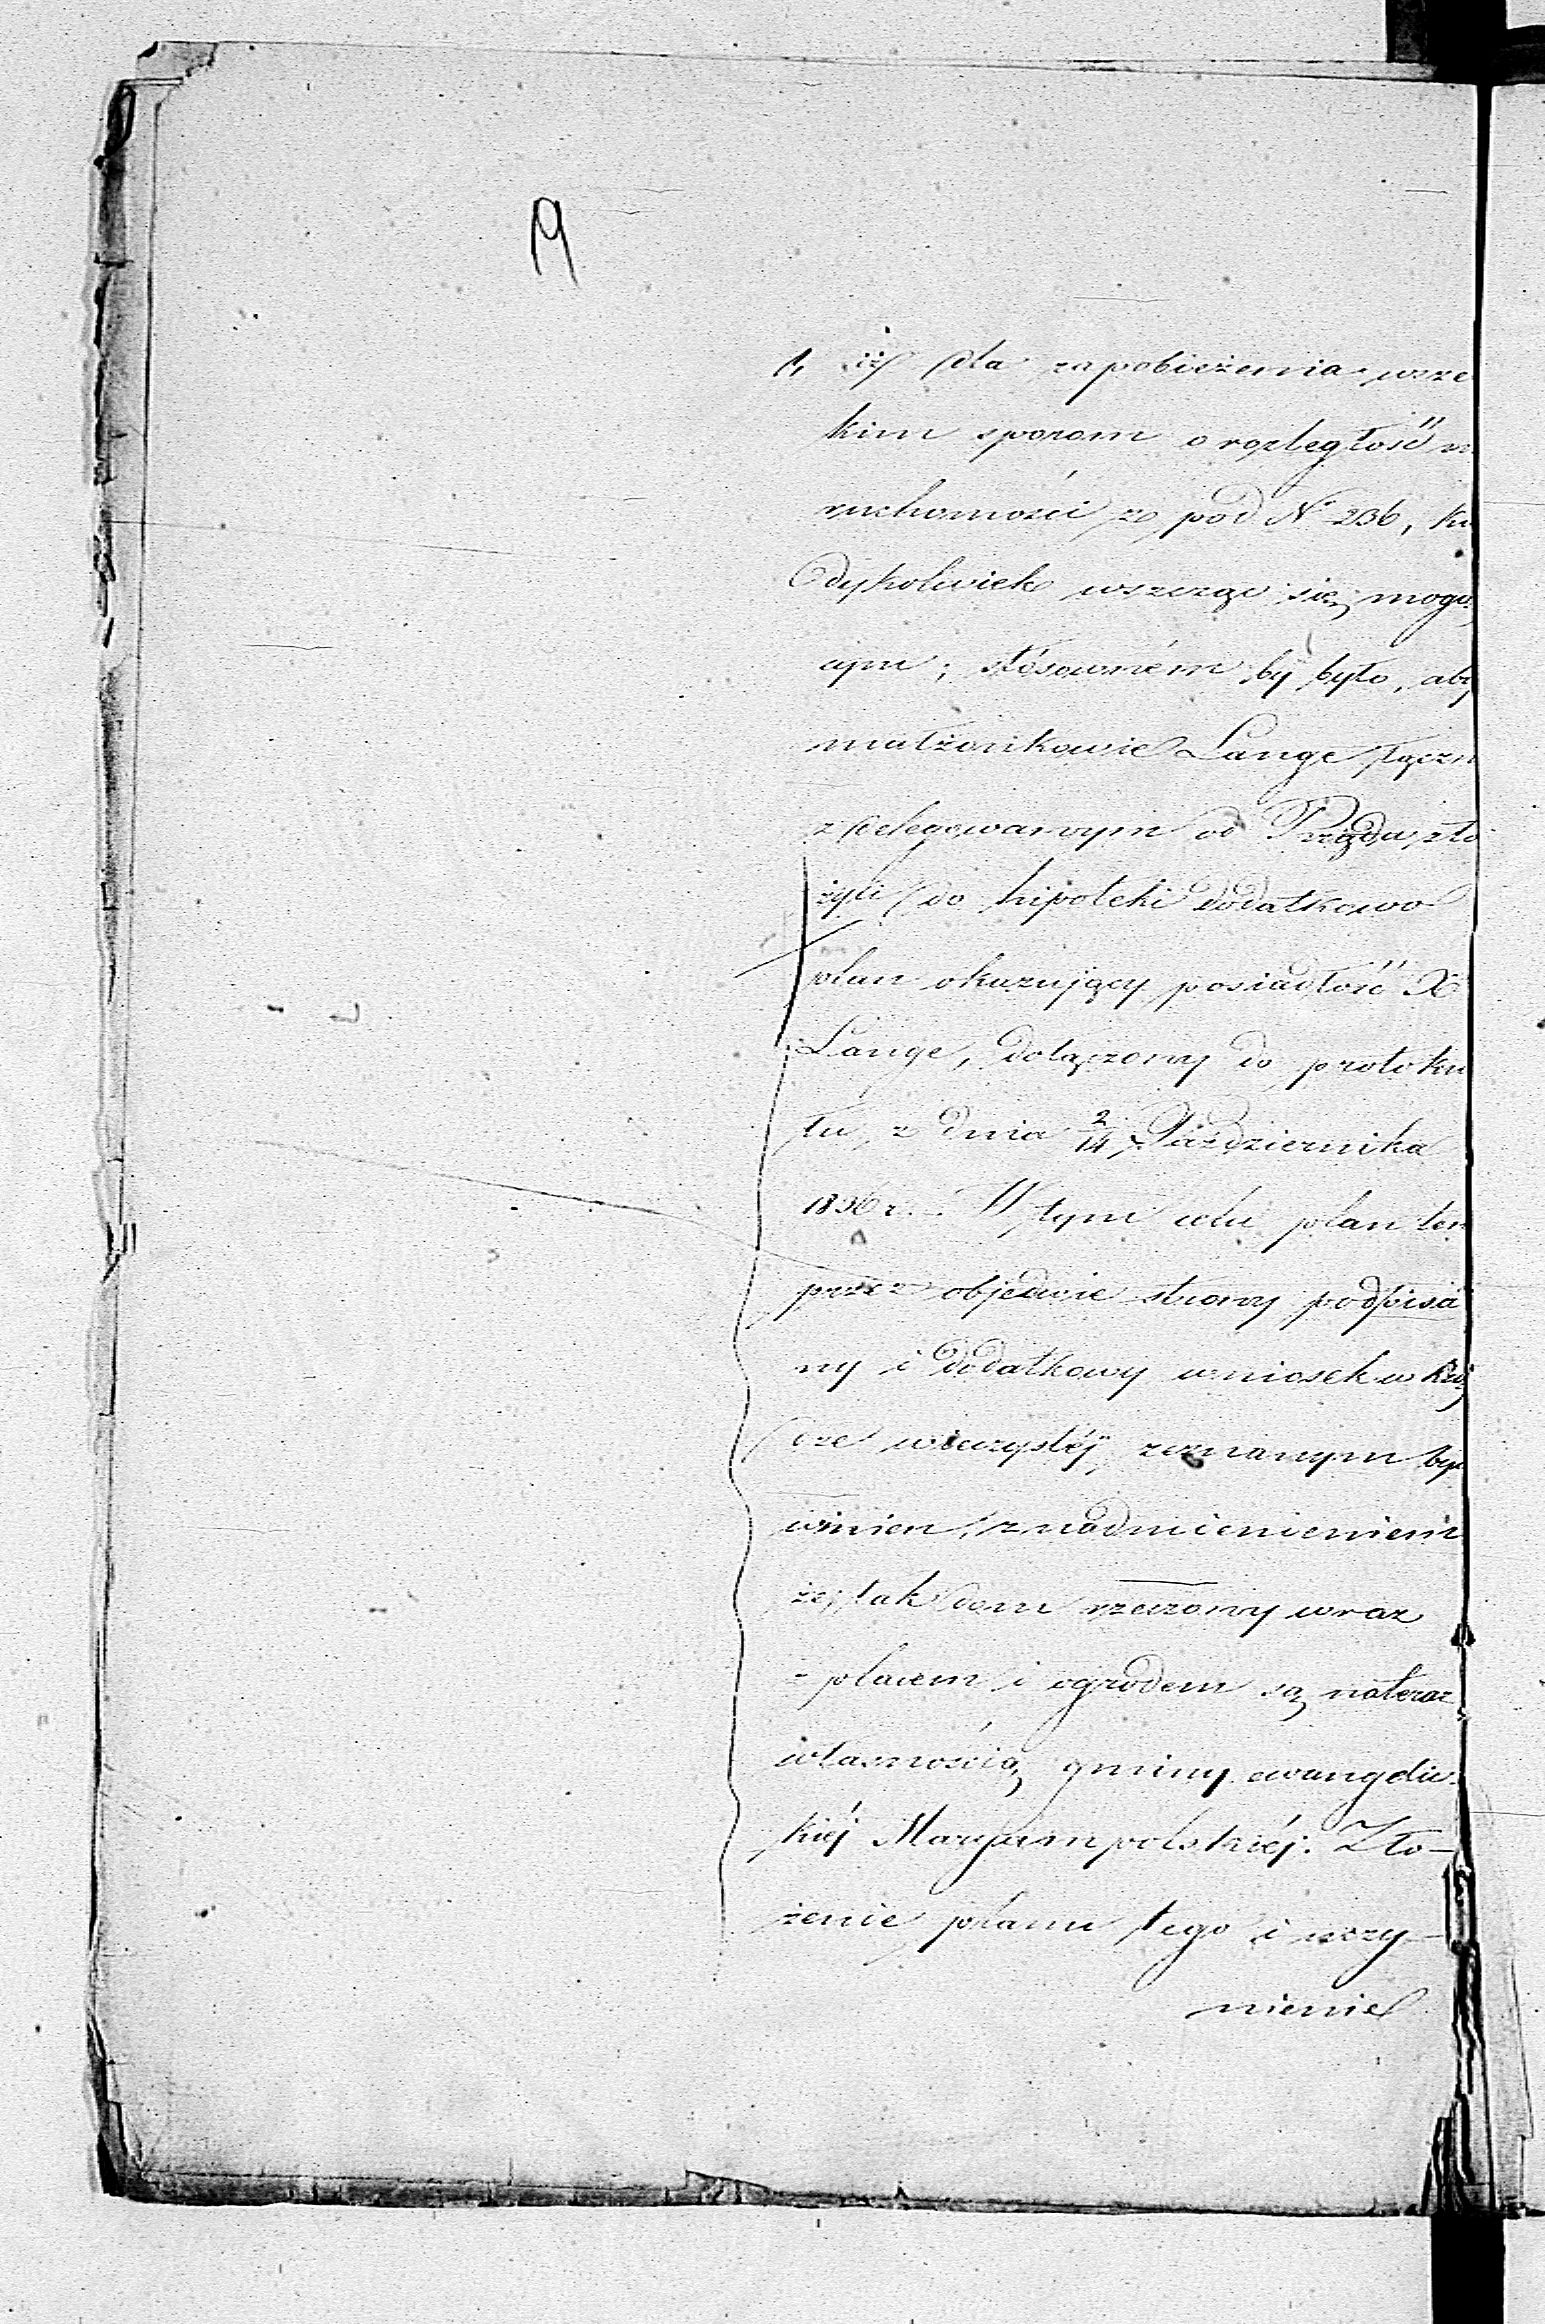 19
1, iż dla zapobieżenia wsze
kim sporom o rozległość n
ruchomości z pod N 236, ki
dykolwiek wszcząć się mogą
cym; stósowném by było, aby
małżonkowie Lange łączn
z delegowanym od Rządu, zło
żyli do hipoteki dodatkowo
plan okazujący posiadłość X
Lange, dołączony do protoku
łu, z dnia 2/14 Października
1836 r. W tym celu plan ten
przez obiedwie strony podpisa
ny i dodatkowy wniosek w księ
dze wieczystéj zeznanym by
winien, z nadmienieniem
że, tak dom rzeczony wraz
z placem i ogrodem są nateraz
własnością gminy ewangelic
kiéj Maryampolskiéj. Zło-
żenie planu tego i uczy-
nienie